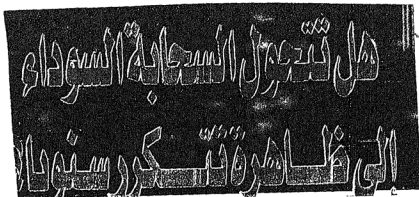 هل تتحول السحابة السوداء
الى ظاهرة تتكرر سنويا